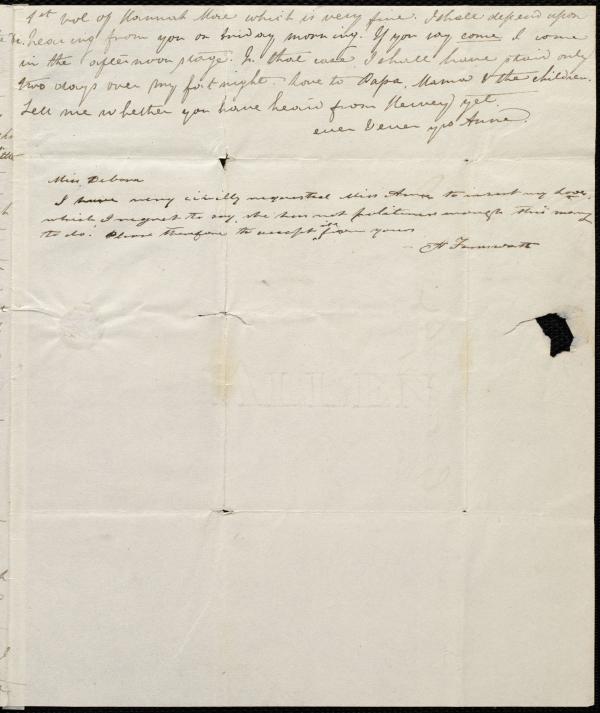 1st vol of Hannah More which is very fine. I shall depend upon
hearing from you on Friday morning. If you say come, I come
in the afternoon stage. In that case I shall have staid only
two days over my fortnight. Love to Papa, Mama & the children.
Tell me whether you have heard from Hervey yet.
ever & ever yrs Anne.
Miss Debora
I have very civilly requested Miss Anne to insert my love,
which I regret to say, she has not politeness enough this morng
to do. Please therefore to accept it from yours
H Farnsworth